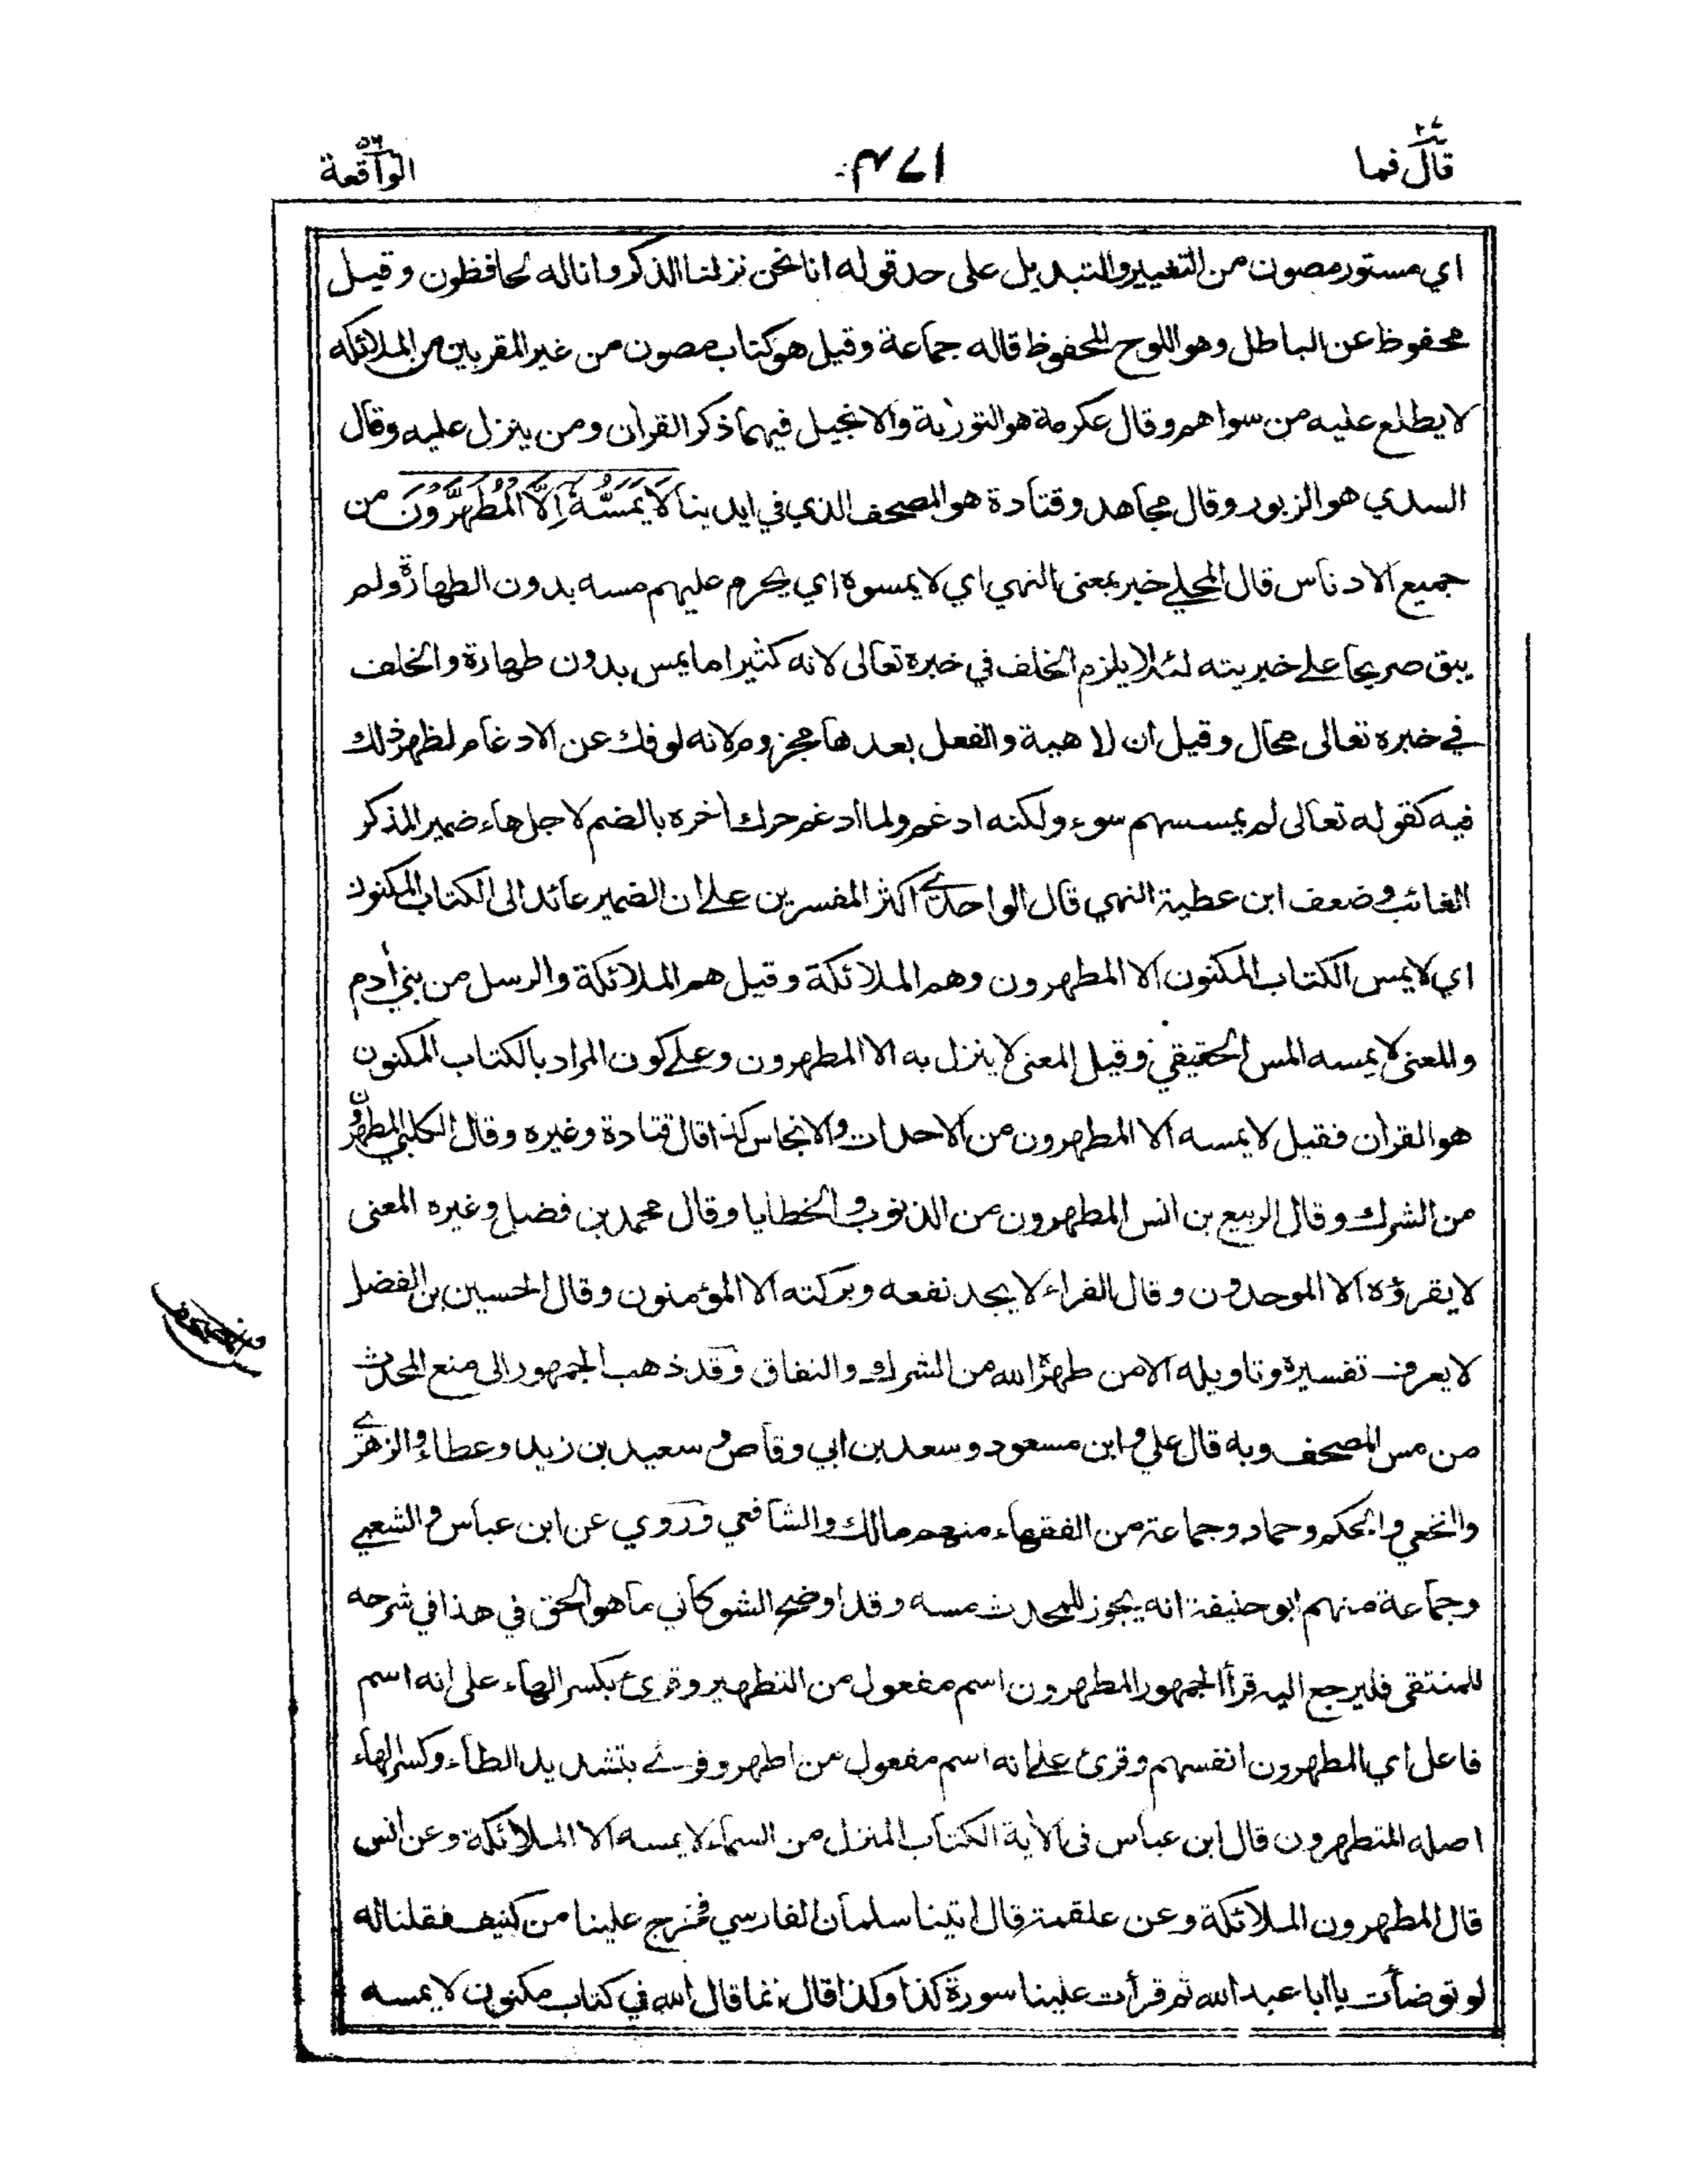 قال فما ٢٧
١٧٤
الواقعة ٥٦
اي مستور مصون من التغيير والتبديل على حد قوله انا نحن نزلنا الذكر وانا له لحافظون وقيل
محفوظ عن الباطل وهو اللوح المحفوظ قاله جماعة وقيل هو كتاب مصون من غير المقربين من الملائكة
لا يطلع عليه من سواهم وقال عكرمة هو التورٰية والانجيل فيهما ذكر القراٰن ومن ينزل عليه وقال
السدي هو الزبور وقال مجاهد وقتادة هو المصحف الذي في ايدينا لَا يَمَسُّهُ اِلَّا الْمُطَهَّرُوْنَ من
جميع الادناس قال المحلي خبر بمعنى النهي اي لا يمسوه اي يحرم عليهم مسه بدون الطهارة ولم
يبق صريحا على خبريته لئلا يلزم الخلف في خبره تعالى لانه كثيرا ما يمس بدون طهارة والخلف
في خبره تعالى محال وقيل ان لا هية والفعل بعدها مجزوم لانه لو فك عن الادغام لظهر ذلك
فيه كقوله تعالى لم يمسسهم سوء ولكنه ادغم ولما ادغم حرك اٰخره بالضم لاجل هاء ضمير المذكر
الغائب وضعف ابن عطية النهي قال الواحدي اكثر المفسرين على ان الضمير عائد الى الكتاب المكنون
اي لا يمس الكتاب المكنون الا المطهرون وهم الملائكة وقيل هم الملائكة والرسل من بني اٰدم
والمعنى لا يمسه المس الحقيقي وقيل المعنى لا ينزل به الا المطهرون وعلى كون المراد بالكتاب المكنون
هو القراٰن فقيل لا يمسه الا المطهرون من الاحداث والانجاس كذا قال قتادة وغيره وقال الكلبي المطهرون
من الشرك وقال الربيع بن انس المطهرون من الذنوب والخطايا وقال محمد بن فضيل وغيره المعنى
لا يقرؤه الا الموحدون وقال الفراء لا يجد نفعه وبركته الا المؤمنون وقال الحسين بن الفضل
لا يعرف تفسيره وتاويله الا من طهره الله من الشرك والنفاق وقد ذهب الجمهور الى منع المحدث
من مس المصحف وبه قال علي وابن مسعود وسعد بن ابي وقاص وسعيد بن زيد وعطاء والزهري
والنخعي والحكم وحماد وجماعة من الفقهاء منهم مالك والشافعي وروي عن ابن عباس والشعبي
وجماعة منهم ابو حنيفة انه يجوز للمحدث مسه وقد اوضح الشوكاني ما هو الحق في هذا في شرحه
للمنتقى فليرجع اليه قرأ الجمهور المطهرون اسم مفعول من التطهير وقرئ بكسر الهاء على انه اسم
فاعل اي المطهرون انفسهم وقرئ على انه اسم مفعول من اطهر وقرئ بتشديد الطاء وكسر الهاء
اصله المتطهرون قال ابن عباس فى الاٰية الكتاب المنزل من السماء لا يمسه الا الملائكة وعن انس
قال المطهرون الملائكة وعن علقمة قال اتينا سلمان الفارسي فخرج علينا من كنيف فقلنا له
لو توضأت يا ابا عبد الله ثم قرأت علينا سورة كذا وكذا قال انما قال الله في كتاب مكنون لا يمسه